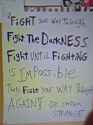 FIGHT your way through
Fight The DarkNESS
FIGHT until FIGHTING
is Impossible
Then FIGHT your way through
AGAIN!
STRANGE